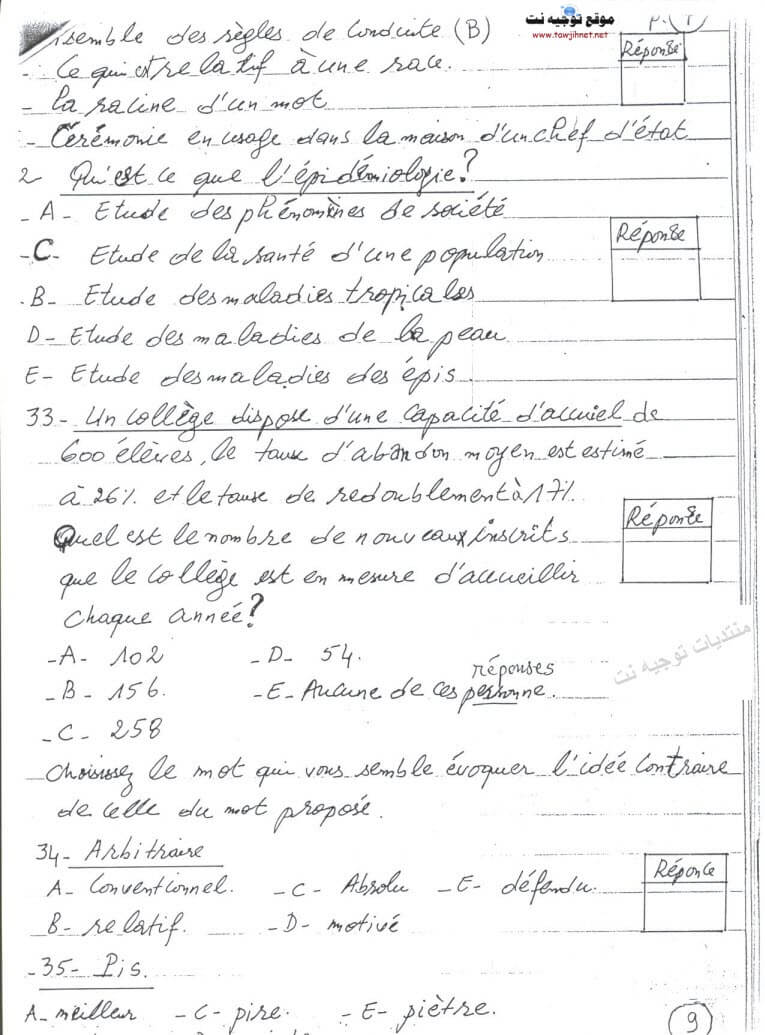 موقع توجيه نت
www.tawjihnet.net
P. (1)
semble des règles de Conduite (B)
Réponse
- Ce qui est relatif à une race.
- La racine d'un mot
- Cérémonie en usage dans la maison d'un chef d'état
2 Qu'est ce que l'épidémiologie?
- A - Etude des phénomènes de société
Réponse
- C - Etude de la santé d'une population
. B - Etude des maladies tropicales
D - Etude des maladies de la peau
E - Etude des maladies des épis
33 - Un collège dispose d'une Capacité d'accuiel de
600 élèves, le taux d'abandon moyen est estimé
à 26% et le taux de redoublement à 17%
Réponse
Quel est le nombre de nouveaux inscrits
que le collège est en mesure d'accueillir
chaque année?
- A - 102 - D - 54.
réponses
- B - 156. - E - Aucune de ces personne.
- C - 258
منتديات توجيه نت
Choisissez le mot qui vous semble évoquer l'idée Contraire
de celle du mot proposé.
34 - Arbitraire
Réponce
A - Conventionnel. - C - Absolu - E - défendu.
B - relatif. - D - motivé
- 35 - Pis.
A - meilleur - C - pire. - E - piètre.
9